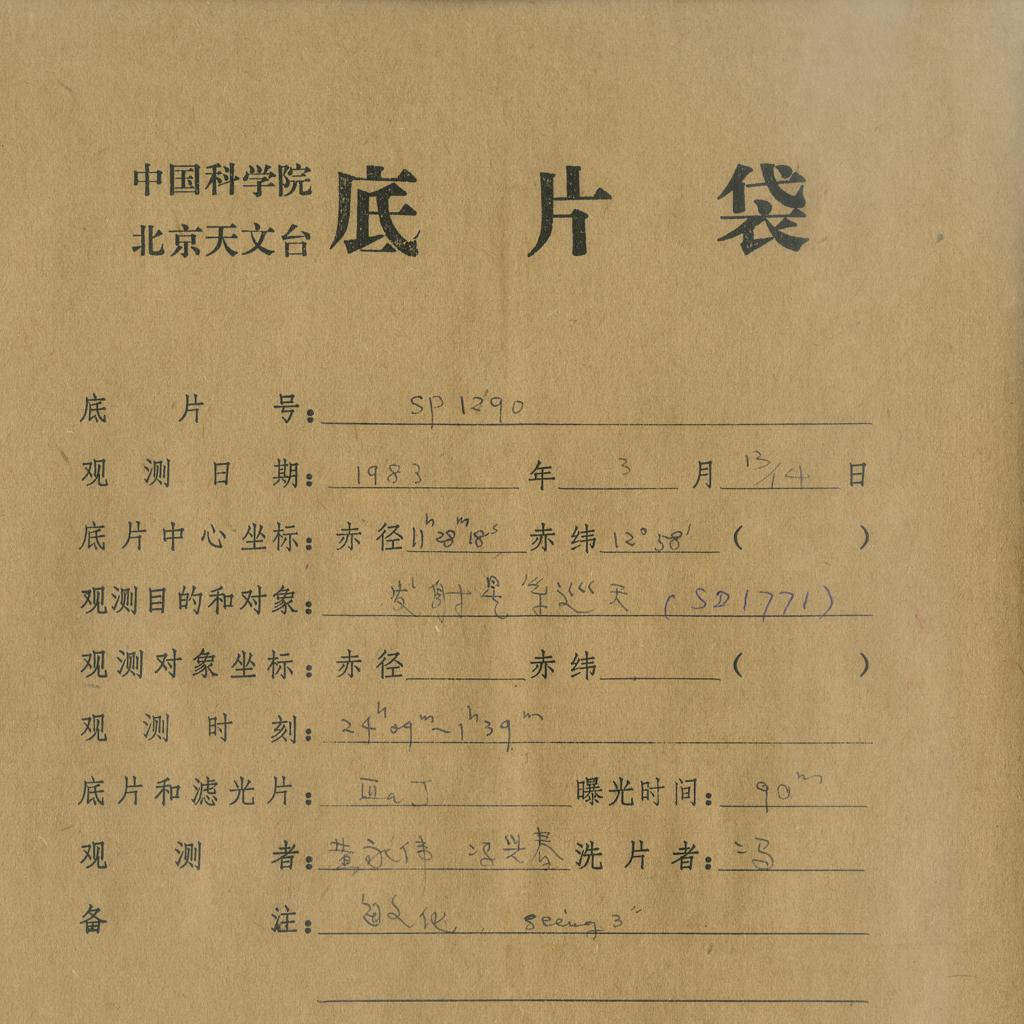 中国科学院
北京天文台
底片袋
底片号：SP1290
观测日期：1983年3月13/14日
底片中心坐标：赤径11ʰ28ᵐ18ˢ赤纬12°58′（ ）
观测目的和对象：发射星系巡天（SD1771）
观测对象坐标：赤径 赤纬 （ ）
观测时刻：24ʰ09ᵐ~1ʰ39ᵐ
底片和滤光片：ⅢaJ 曝光时间：90ᵐ
观测者：黄永伟 冯兴春 洗片者：冯
备注：敏化 seeing 3″